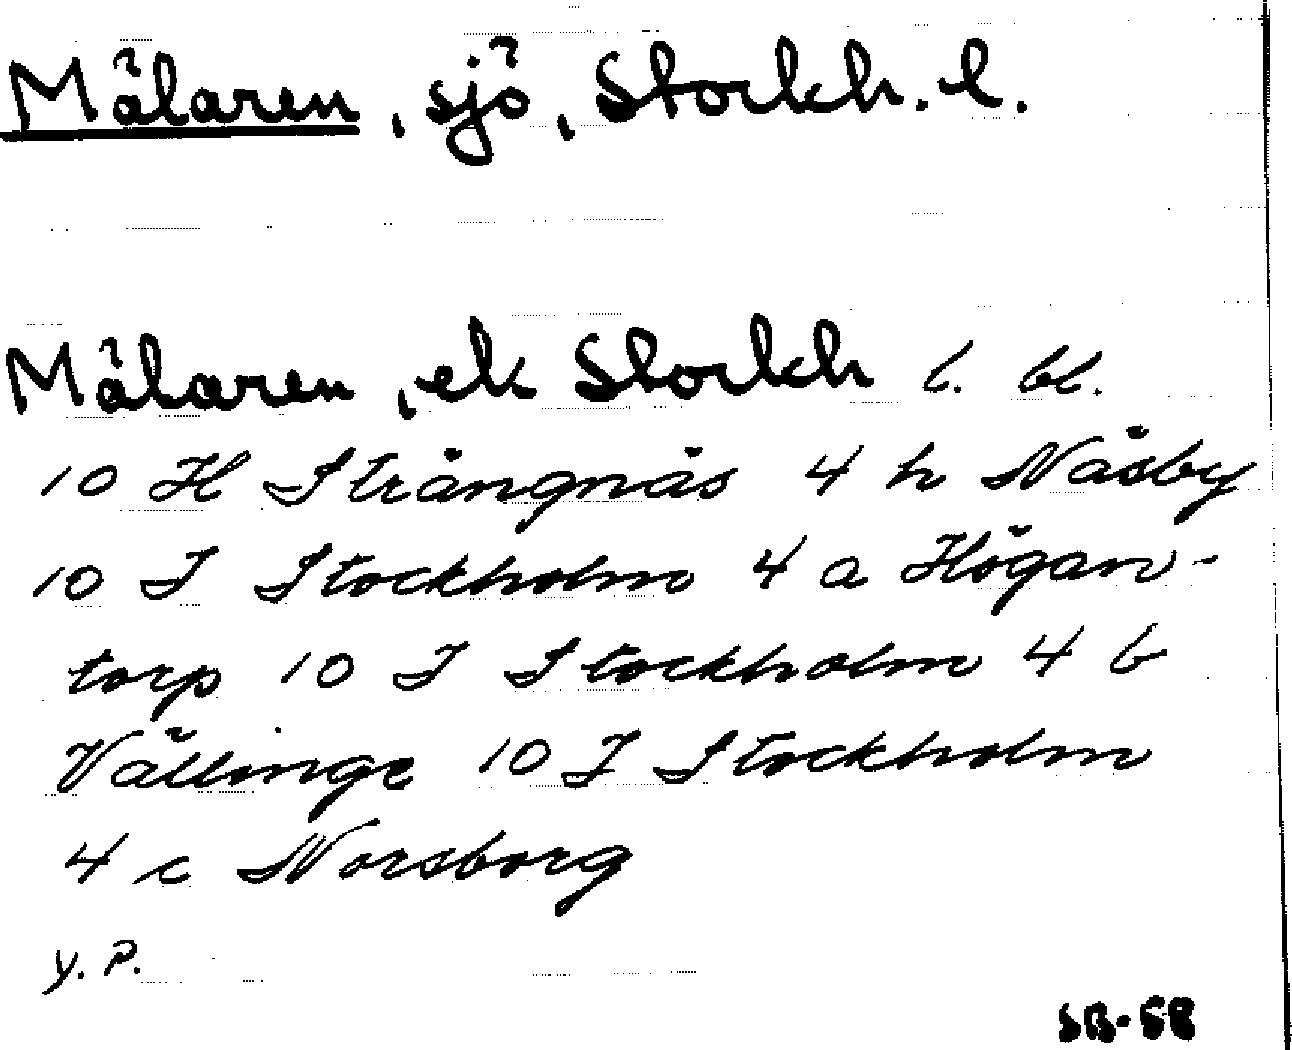 Mälaren, sjö, Stockh. l.
Mälaren, ek Stockh l. bl.
10 H Strängnäs 4 h Näsby
10 I Stockholm 4 a Högan-
torp 10 I Stockholm 4 b
Vällinge 10 I Stockholm
4 c Norsborg
y. P.
SB-58